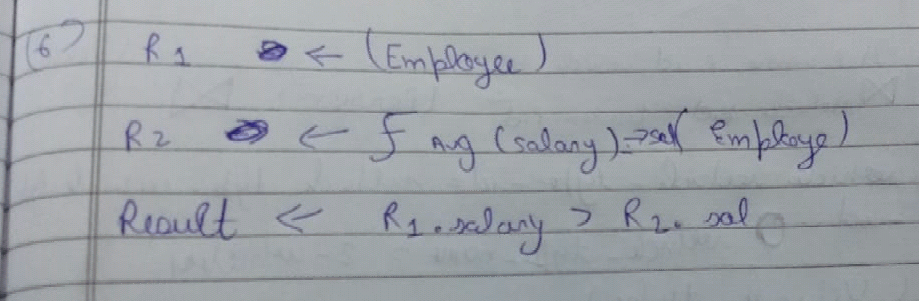 (6) R1 ← (Employee)
R2 ← f Avg (salary)→sal( Employe)
Result ← R1.salary > R2. sal